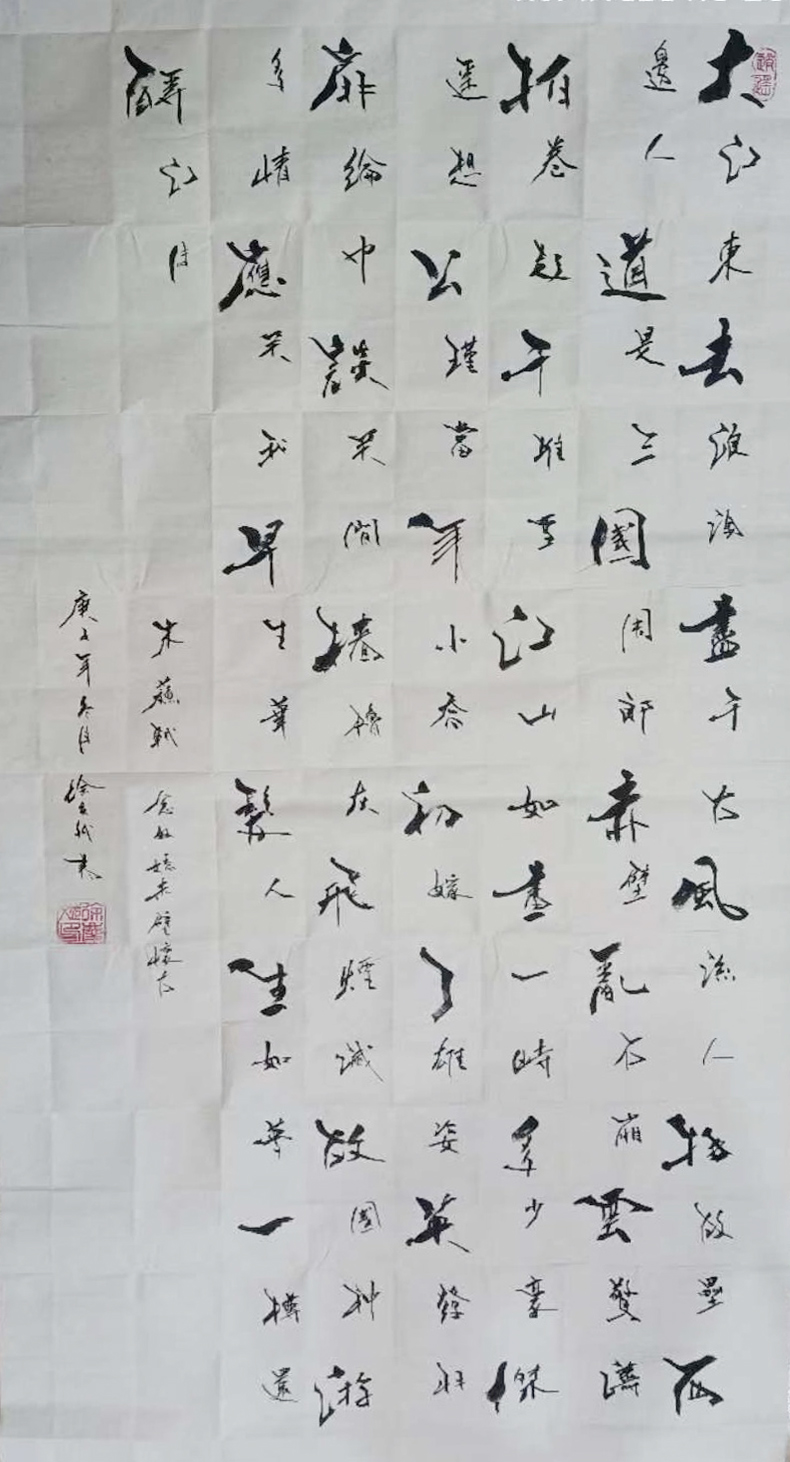 大江東去浪淘盡千古風流人物故壘西
邊人道是三國周郎赤壁亂石崩雲驚濤
拍卷起千堆雪江山如畫一時多少豪傑
遙想公瑾當年小喬初嫁了雄姿英發羽
扇綸巾談笑間檣櫓灰飛煙滅故國神游
多情應笑我早生華髮人生如夢一樽還
酹江月
宋蘇軾 念奴嬌赤壁懷古
庚子年冬月徐書